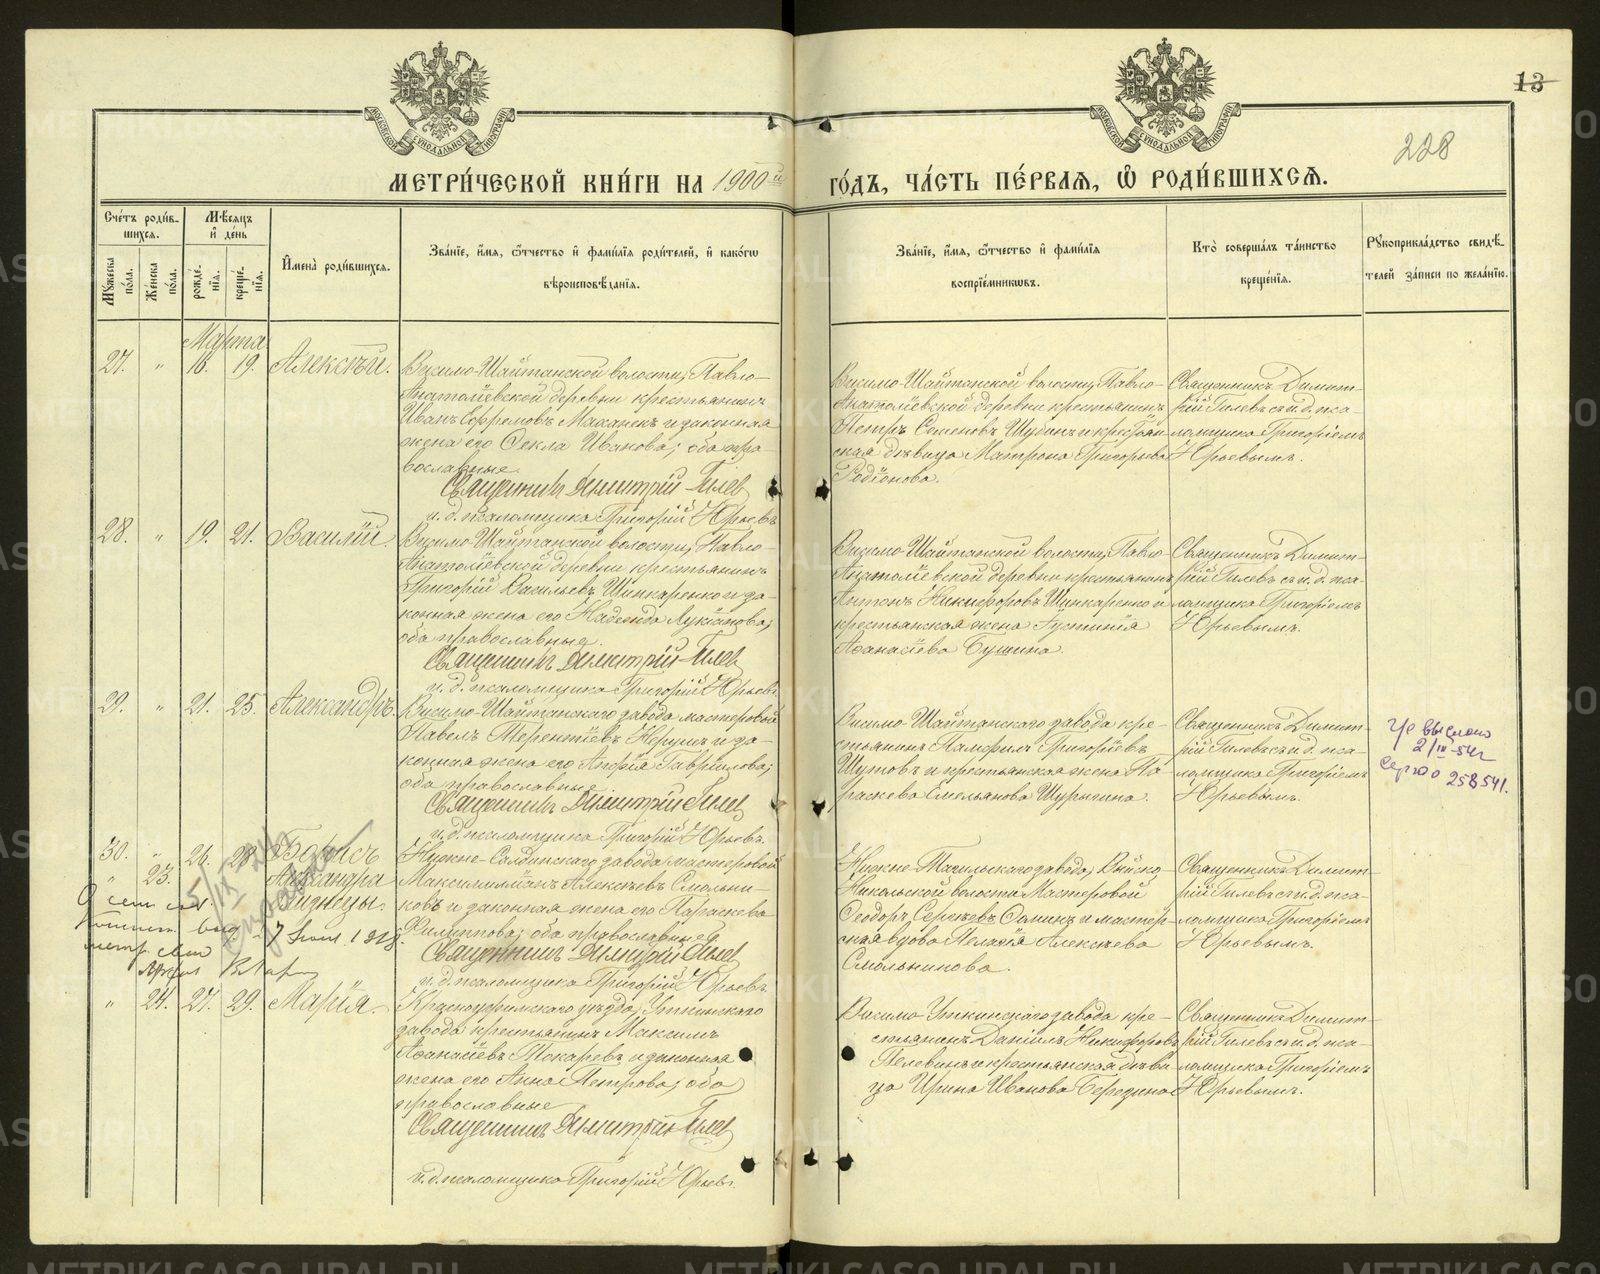 13
228
МЕТРИ́ЧЕСКОЙ КНИ́ГИ НА 1900й ГО́ДЪ, ЧА́СТЬ ПЕ́РВАЯ, Ѡ РОДИ́ВШИХСЯ.
Сче́тъ роди́в-
шихся.
Мѣ́сяцъ
и де́нь
Му́жеска
по́ла.
Же́нска
по́ла.
рожде́-
нія.
креще́-
нія.
Имена̀ роди́вшихся.
Зва́ніе, и́мя, ѻ́тчество и фами́лія роди́телей, и како́гѡ
вѣроисповѣ́данія.
Зва́ніе, и́мя, ѻ́тчество и фами́лія
воспріе́мникѡвъ.
Кто̀ соверша́лъ та́инство
креще́нія.
Рукоприкла́дство свидѣ́-
телей за́писи по жела́нію.
Марта
27. " 16. 19. Алексѣй.
Висимо-Шайтанской волости, Павло-
Анатоліевской деревни крестьянинъ
Иванъ Ефремовъ Маханекъ и законная
жена его Фекла Иванова; оба пра-
вославные
Священникъ Димитрій Гилев
и. д. псаломщика Григорій Юрьевъ
Висимо-Шайтанской волости, Павло-
Анатоліевской деревни крестьянинъ
Петръ Семеновъ Шубинъ и крестьян-
ская дѣвица Матрона Григорьева
Родіонова.
Священникъ Димит-
рій Гилевъ съ и. д. пса-
ломщика Григоріемъ
Юрьевымъ.
28. " 19. 21. Василій.
Висимо-Шайтанской волости, Павло-
Анатоліевской деревни крестьянинъ
Григорій Васильевъ Шинкаренко и за-
конная жена его Надежда Лукіанова;
оба православные.
Священникъ Димитрій Гилев
и. д. псаломщика Григорій Юрьевъ
Висимо-Шайтанской волости, Павло-
Анатоліевской деревни крестьянинъ
Антонъ Никифоровъ Шинкаренко и
крестьянская жена Іустинія
Афанасіева Бушина.
Священникъ Димит-
рій Гилевъ съ и. д. пса-
ломщика Григоріемъ
Юрьевымъ.
29. " 21. 25. Александръ.
Висимо-Шайтанскаго завода мастеровый
Павелъ Терентіевъ и за-
конная жена его Гавриилова;
оба православные
Священникъ Димитрій Гилев
и. д. псаломщика Григорій Юрьевъ.
Висимо-Шайтанскаго завода кре-
стьянинъ Памфилъ Григоріевъ
Шутовъ и крестьянская жена Па-
раскева Емельянова Шурыгина.
Священникъ Димит-
рій Гилевъ съ и. д. пса-
ломщика Григоріемъ
Юрьевымъ.
выслано
2/III-54г
258541.
30. " 26. 28. Борисъ
" 23. Александра
близнецы.
Нижне-Салдинскаго завода мастеровой
Максимилианъ Алексѣевъ Смольни-
ковъ и законная жена его Параскева
Филиппова; оба православные
Священникъ Димитрій Гилев
и. д. псаломщика Григорій Юрьевъ
Нижне-Тагильскаго завода, Выйско-
Никольской волости мастеровой
Феодоръ Сергѣевъ и мастер-
ская вдова Пелагія Алексѣева
Смольникова.
Священникъ Димит-
рій Гилевъ съ и. д. пса-
ломщика Григоріемъ
Юрьевымъ.
" 24. 27. 29. Марія.
Красноуфимскаго уѣзда, Уткинскаго
завода крестьянинъ Максимъ
Афанасіевъ Токаревъ и законная
жена его Анна Петрова; оба
православные
Священникъ Димитрій Гилев
и. д. псаломщика Григорій Юрьевъ.
Висимо-Уткинскаго завода кре-
стьянинъ Даніилъ Никифоровъ
Пелевинъ и крестьянская дѣви-
ца Ирина Иванова Бередина
Священникъ Димит-
рій Гилевъ съ и. д. пса-
ломщика Григоріемъ
Юрьевымъ.